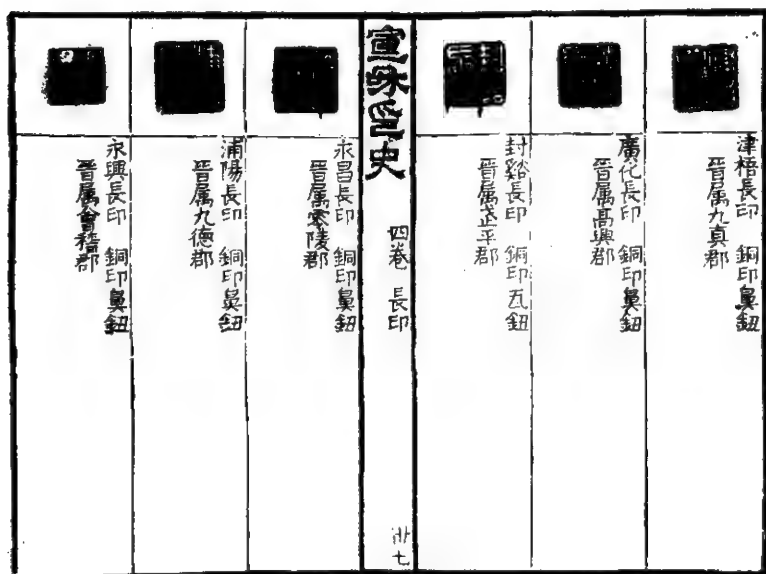 津梧長印　銅印鼻鈕
晉屬九真郡
廣化長印　銅印鼻鈕
晉屬高興郡
封谿長印　銅印瓦鈕
晉屬武平郡
宣和印史
四卷　長印
卅七
永昌長印　銅印鼻鈕
晉屬零陵郡
浦陽長印　銅印鼻鈕
晉屬九德郡
永興長印　銅印鼻鈕
晉屬會稽郡